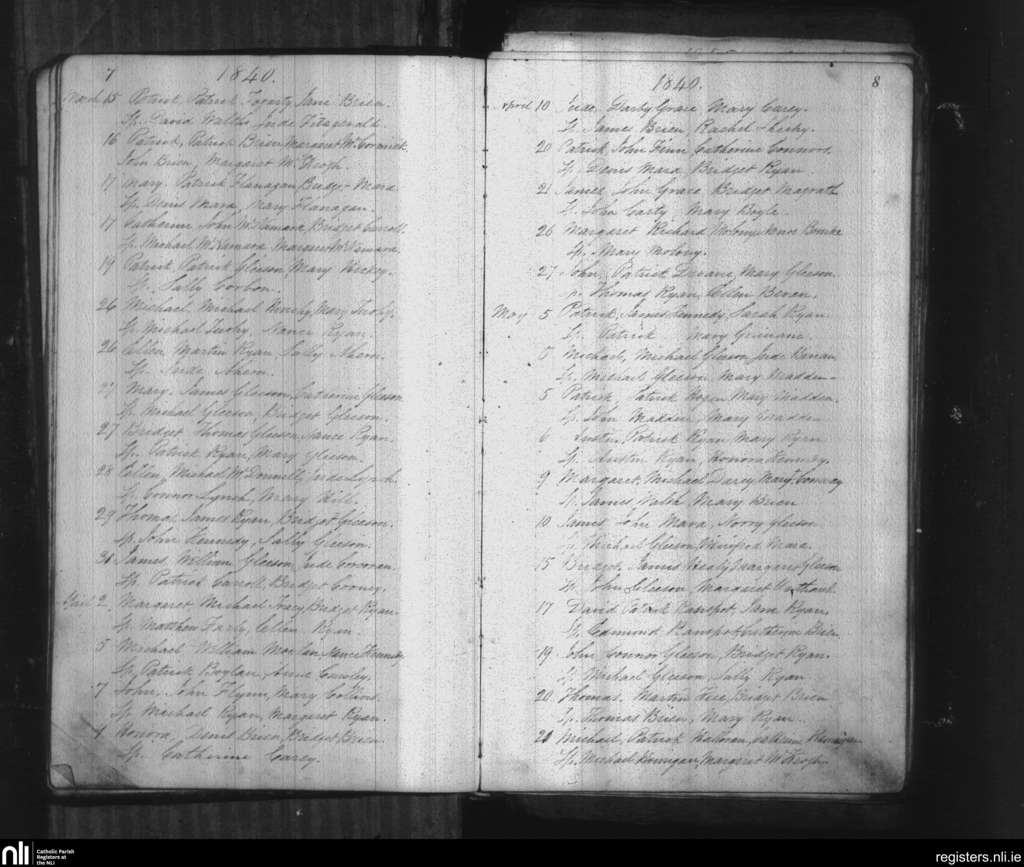 7 1840.
March 15 Patrick, Patrick Fogarty, Jane Brien.
Sp. David Walsh, Jude Fitzgerald.
16 Patrick, Patrick Brien, Margaret McCormick.
John Brien, Margaret McKeogh.
17 Mary, Patrick Flanagan, Bridget Mara.
Sp. Denis Mara, Mary Flanagan.
17 Catherine, John McNamara, Bridget Carroll.
Sp. Michael McNamara, Margaret McNamara.
19 Patrick, Patrick Gleeson, Mary Hickey.
Sp. Sally Corbon.
26 Michael, Michael Murphy, Mary Tuohy.
Sp. Michael Tuohy, Nance Ryan.
26 Ellen, Martin Ryan, Sally Ahern.
Sp. Jude Ahern.
27 Mary, James Gleeson, Catherine Gleeson
Sp. Michael Gleeson, Bridget Gleeson.
27 Bridget, Thomas Gleeson, Nance Ryan.
Sp. Patrick Ryan, Mary Gleeson.
28 Ellen, Michael McDonnell, Jude Lynch.
Sp. Connor Lynch, Mary Hill.
29 Thomas, James Ryan, Bridget Gleeson.
Sp. John Kennedy, Sally Gleeson.
31 James, William Gleeson, Jude Corcoran.
Sp. Patrick Carroll, Bridget Cooney.
April 2 Margaret, Michael Tracy, Bridget Ryan
Sp. Matthew Ellen Ryan.
5 Michael, William Nance Kennedy
Sp. Patrick Boylan, Anne
7 John, John Flynn, Mary Collins.
Sp. Michael Ryan, Margaret Ryan.
Honora, Denis Brien, Bridget Brien
Sp. Catherine Carey.
1840. 8
April 10 Jude, Darby Grace, Mary Carey.
Sp. James Brien, Rachel Sheehy.
20 Patrick, John Finn, Catherine Connors.
Sp. Denis Mara, Bridget Ryan.
21 James, John Grace, Bridget Magrath
Sp. John Carty, Mary Boyle.
26 Margaret, Richard Molony, Nance Bourke
Sp. Mary Molony.
27 John, Patrick Mary Gleeson.
Sp. Thomas Ryan, Ellen Brien.
May 5 Patrick, James Kennedy, Sarah Ryan.
Sp. Patrick Mary
5 Michael, Michael Gleeson, Jude
Sp. Michael Gleeson, Mary Madden
5 Patrick, Patrick Hogan, Mary Madden.
Sp. John Madden, Mary Madden.
6 Austin, Patrick Ryan, Mary Ryan
Sp. Austin Ryan, Honora Kennedy.
9 Margaret, Michael Darcy, Margt. Conway
Sp. James Mary Brien
10 James, John Mara, Norry Gleeson
Sp. Michael Gleeson, Winifred Mara.
15 Bridget, James Healy, Margaret Gleeson
Sp. John Gleeson, Margaret
17 David, Patrick Ranspot, Jane Ryan.
Sp. Edmund Ranspot, Catherine Brien.
19 John, Connor Gleeson, Bridget Ryan.
Sp. Michael Gleeson, Sally Ryan
20 Thomas, Martin Bridget Brien
Sp. Thomas Brien, Mary Ryan
Michael, Patrick
Sp. Michael Margaret McKeogh
nli Catholic Parish Registers at the NLI
registers.nli.ie